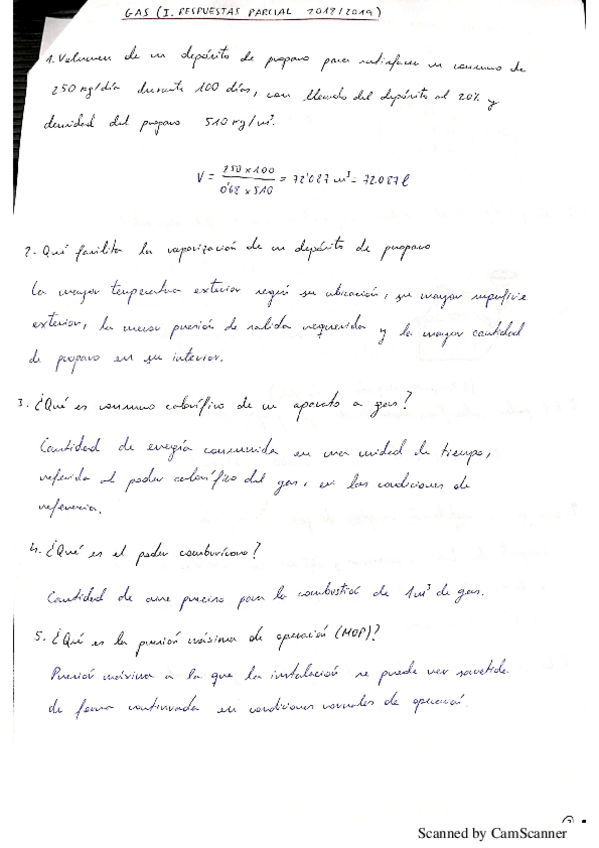 GAS (I. RESPUESTAS PARCIAL 2018/2019)
1. Volumen de un depósito de propano para satisfacer un consumo de
250 kg/día durante 100 días, con llenado del depósito al 20% y
densidad del propano 510 kg/m³.
V = 250 x 100 / 0'68 x 510 = 72'087 m³ = 72.087 l
2. Qué facilita la vaporización de un depósito de propano
La mayor temperatura exterior según su ubicación, su mayor superficie
exterior, la menor presión de salida requerida y la mayor cantidad
de propano en su interior.
3. ¿Qué es consumo calorífico de un aparato a gas?
Cantidad de energía consumida en una unidad de tiempo,
referida al poder calorífico del gas, en las condiciones de
referencia.
4. ¿Qué es el poder comburívoro?
Cantidad de aire preciso para la combustión de 1m³ de gas.
5. ¿Qué es la presión máxima de operación (MOP)?
Presión máxima a la que la instalación se puede ver sometida
de forma continuada en condiciones normales de operación.
Scanned by CamScanner